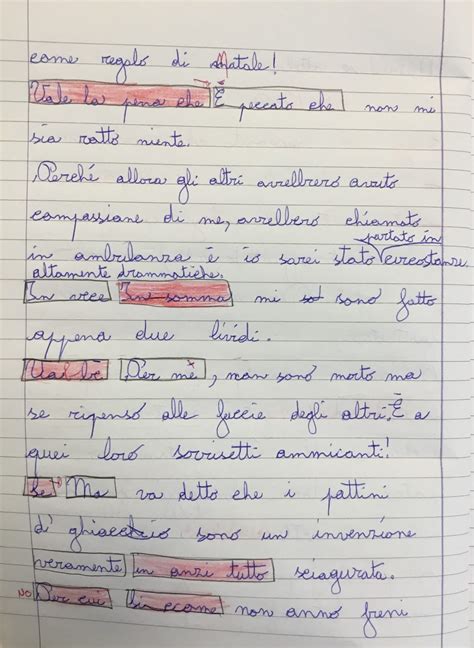 come regalo di Natale!
Vale la pena che È peccato che non mi
sia rotto niente.
Perché allora gli altri avrebbero avuto
compassione di me, avrebbero chiamato
portato in
in ambulanza e io sarei stato circostanze
altamente drammatiche.
In vece In somma mi so sono fatto
appena due lividi.
Va bè Per me, non sono morto ma
se ripenso alle faccie degli altri. E a
quei loro sorrisetti ammicanti!
Se Ma va detto che i pattini
d' ghiaccio sono un invenzione
veramente in anzi tutto sciagurata.
NO Per cui Si ecome non anno freni